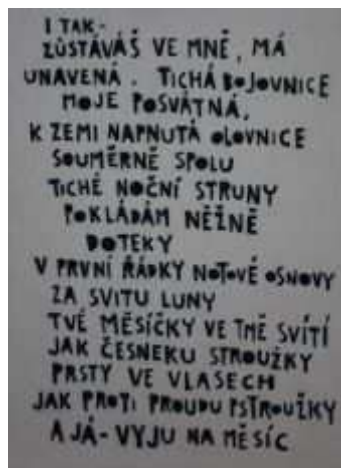 I TAK-
ZŮSTÁVÁŠ VE MNĚ, MÁ
UNAVENÁ. TICHÁ BOJOVNICE
MOJE POSVÁTNÁ,
K ZEMI NAPNUTÁ OLOVNICE
SOUMĚRNĚ SPOLU
TICHÉ NOČNÍ STRUNY
POKLÁDÁM NĚŽNĚ
DOTEKY
V PRVNÍ ŘÁDKY NOTOVÉ OSNOVY
ZA SVITU LUNY
TVÉ MĚSÍČKY VE TMĚ SVÍTÍ
JAK ČESNEKU STROUŽKY
PRSTY VE VLASECH
JAK PROTI PROUDU PSTROUŽKY
A JÁ- VYJU NA MĚSÍC